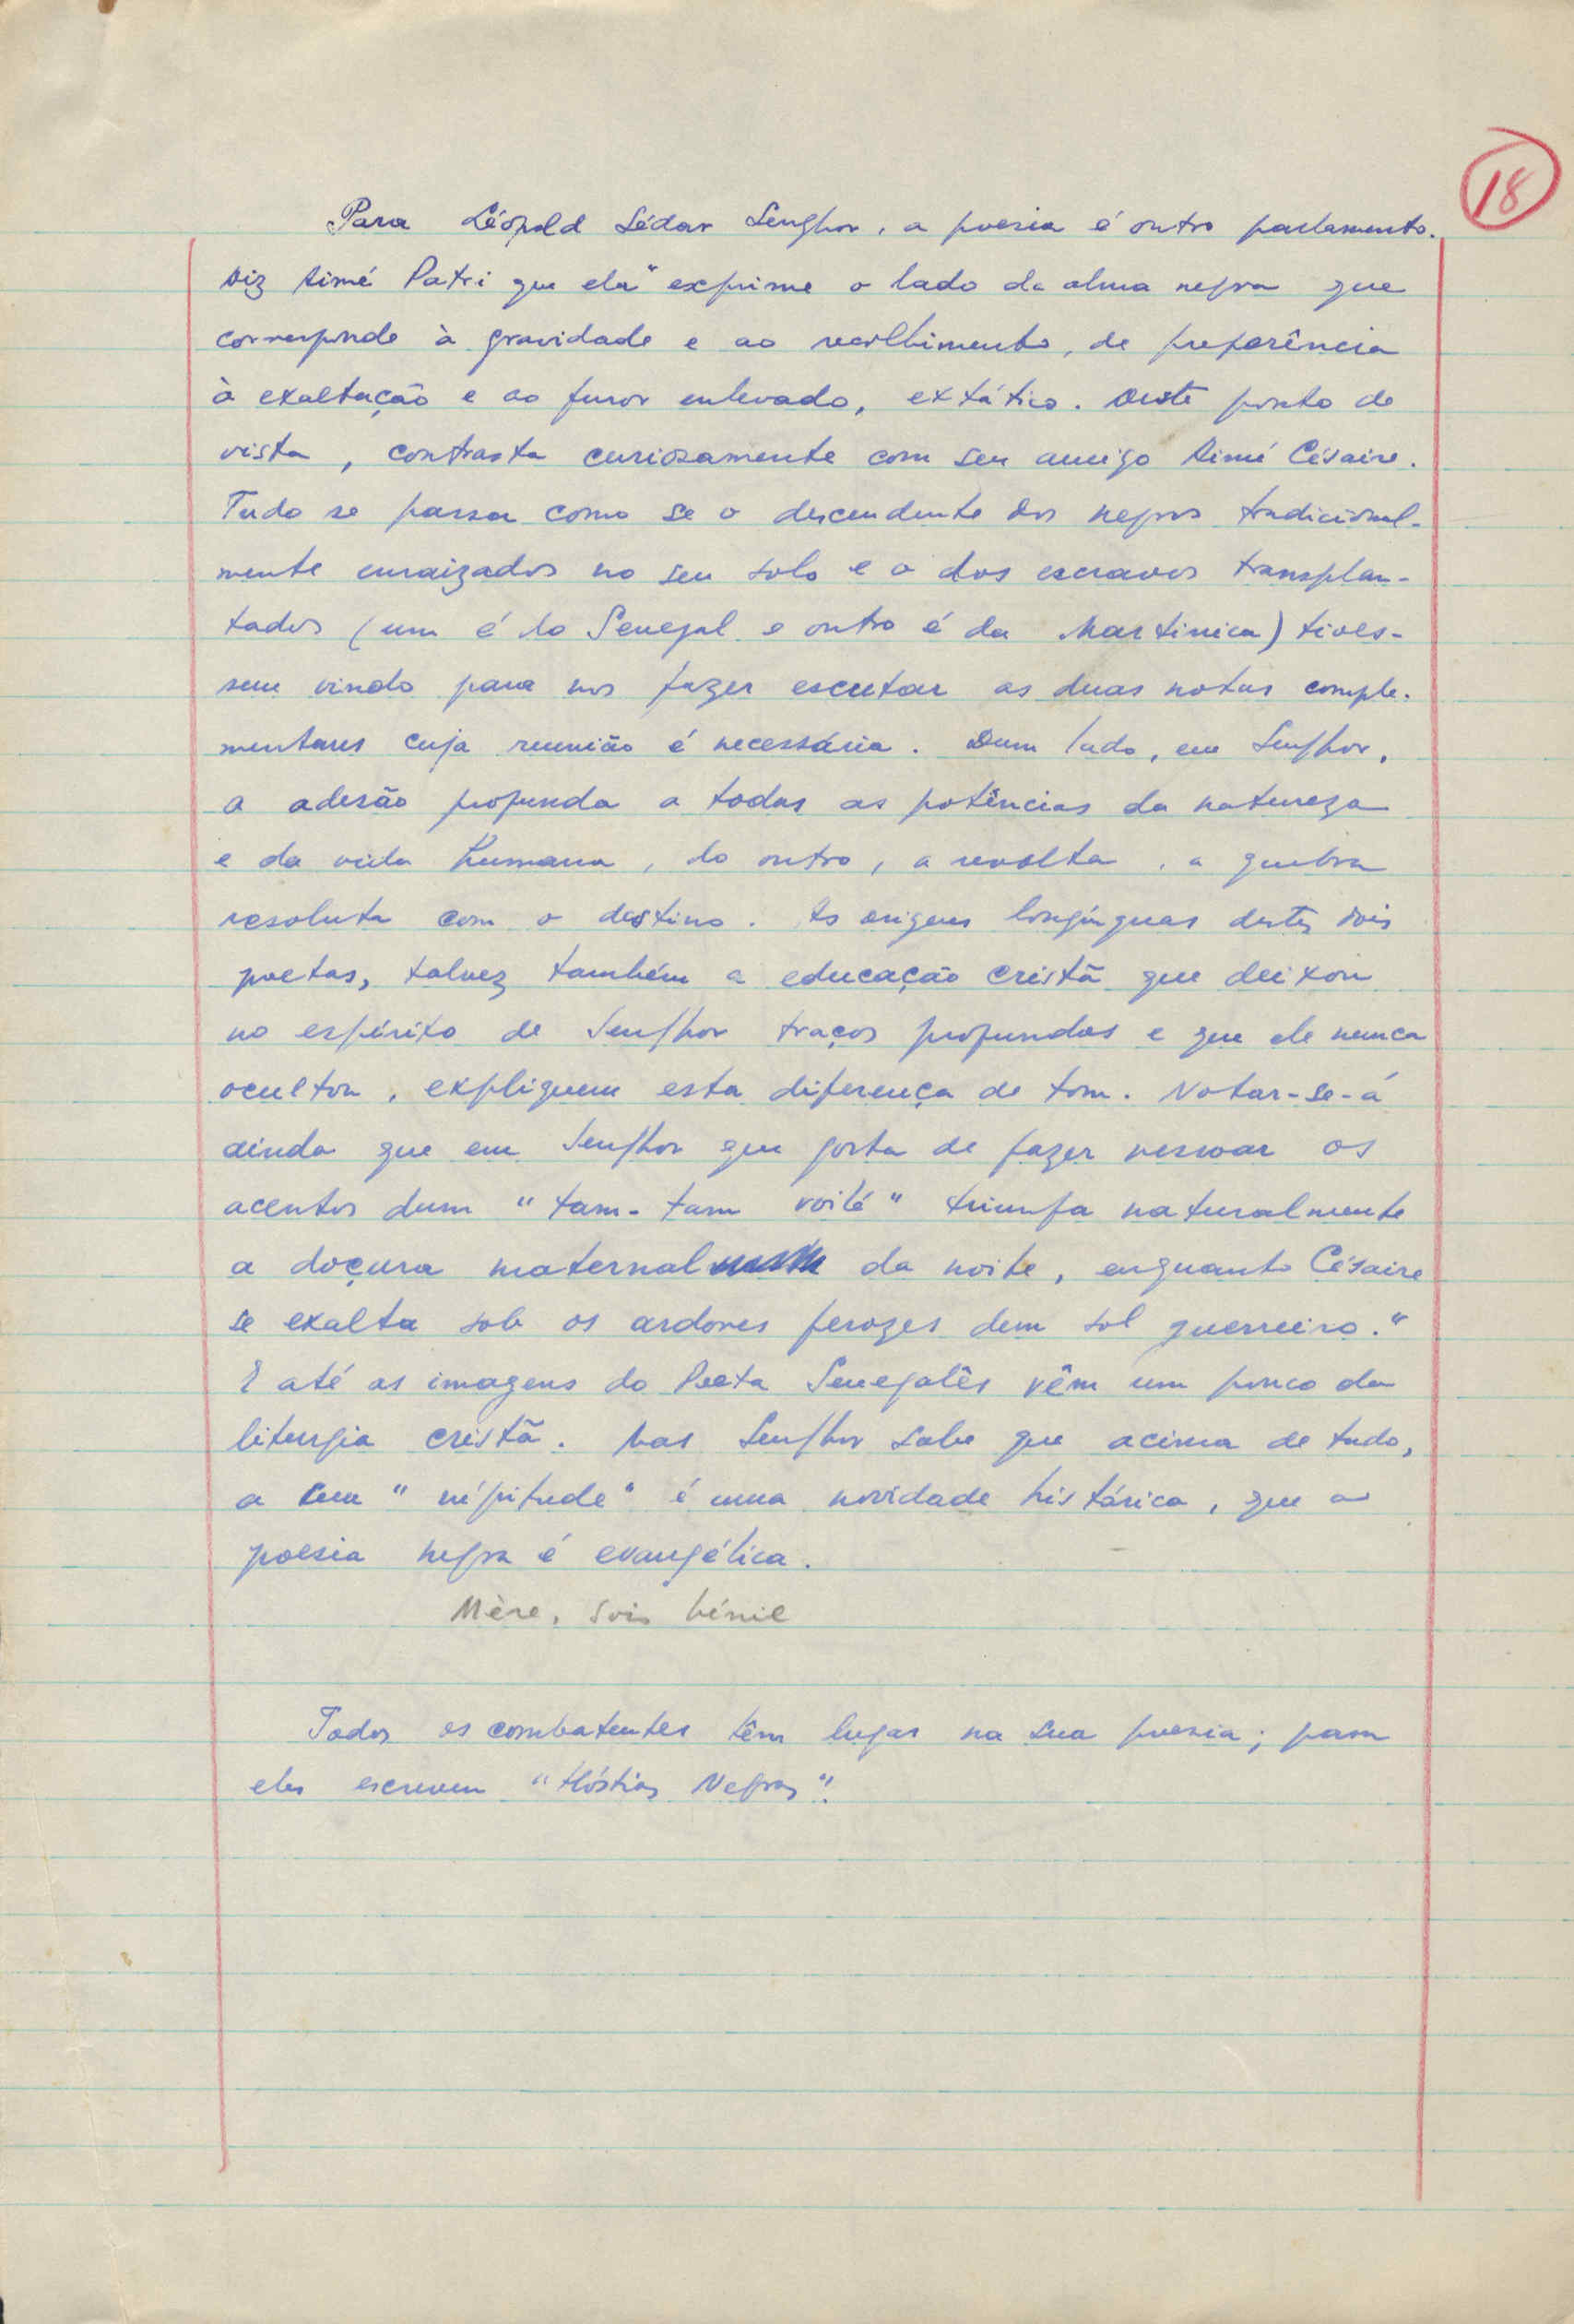 18
Para Léopold Sédar Senghor, a poesia é outro parlamento.
Diz Aimé Patri que ela "exprime o lado da alma negra que
corresponde à gravidade e ao recolhimento, de preferência
à exaltação e ao furor enlevado, extático. Deste ponto de
vista, contrasta curiosamente com seu amigo Aimé Césaire.
Tudo se passa como se o descendente dos negros tradicional-
mente enraizados no seu solo e o dos escravos transplan-
tados (um é do Senegal e outro é da Martinica) tives-
sem vindo para nos fazer escutar as duas notas comple-
mentares cuja reunião é necessária. Dum lado, em Senghor,
a adesão profunda a todas as potências da natureza
e da vida humana, do outro, a revolta, a quebra
resoluta com o destino. As origens longínquas destes dois
poetas, talvez também a educação cristã que deixou
no espírito de Senghor traços profundos e que ele nunca
ocultou, expliquem esta diferença de tom. Notar-se-á
ainda que em Senghor que gosta de fazer ressoar os
acentos dum "tam-tam voilé" triunfa naturalmente
a doçura maternal da noite, enquanto Césaire
se exalta sob os ardores ferozes dum sol guerreiro."
E até as imagens do Poeta Senegalês vêm um pouco da
liturgia cristã. Mas Senghor sabe que acima de tudo,
a sua "négritude" é uma novidade histórica, que a
poesia negra é evangélica.
Mère, sois bénie
Todos os combatentes têm lugar na sua poesia; para
eles escreveu "Hóstias Negras".